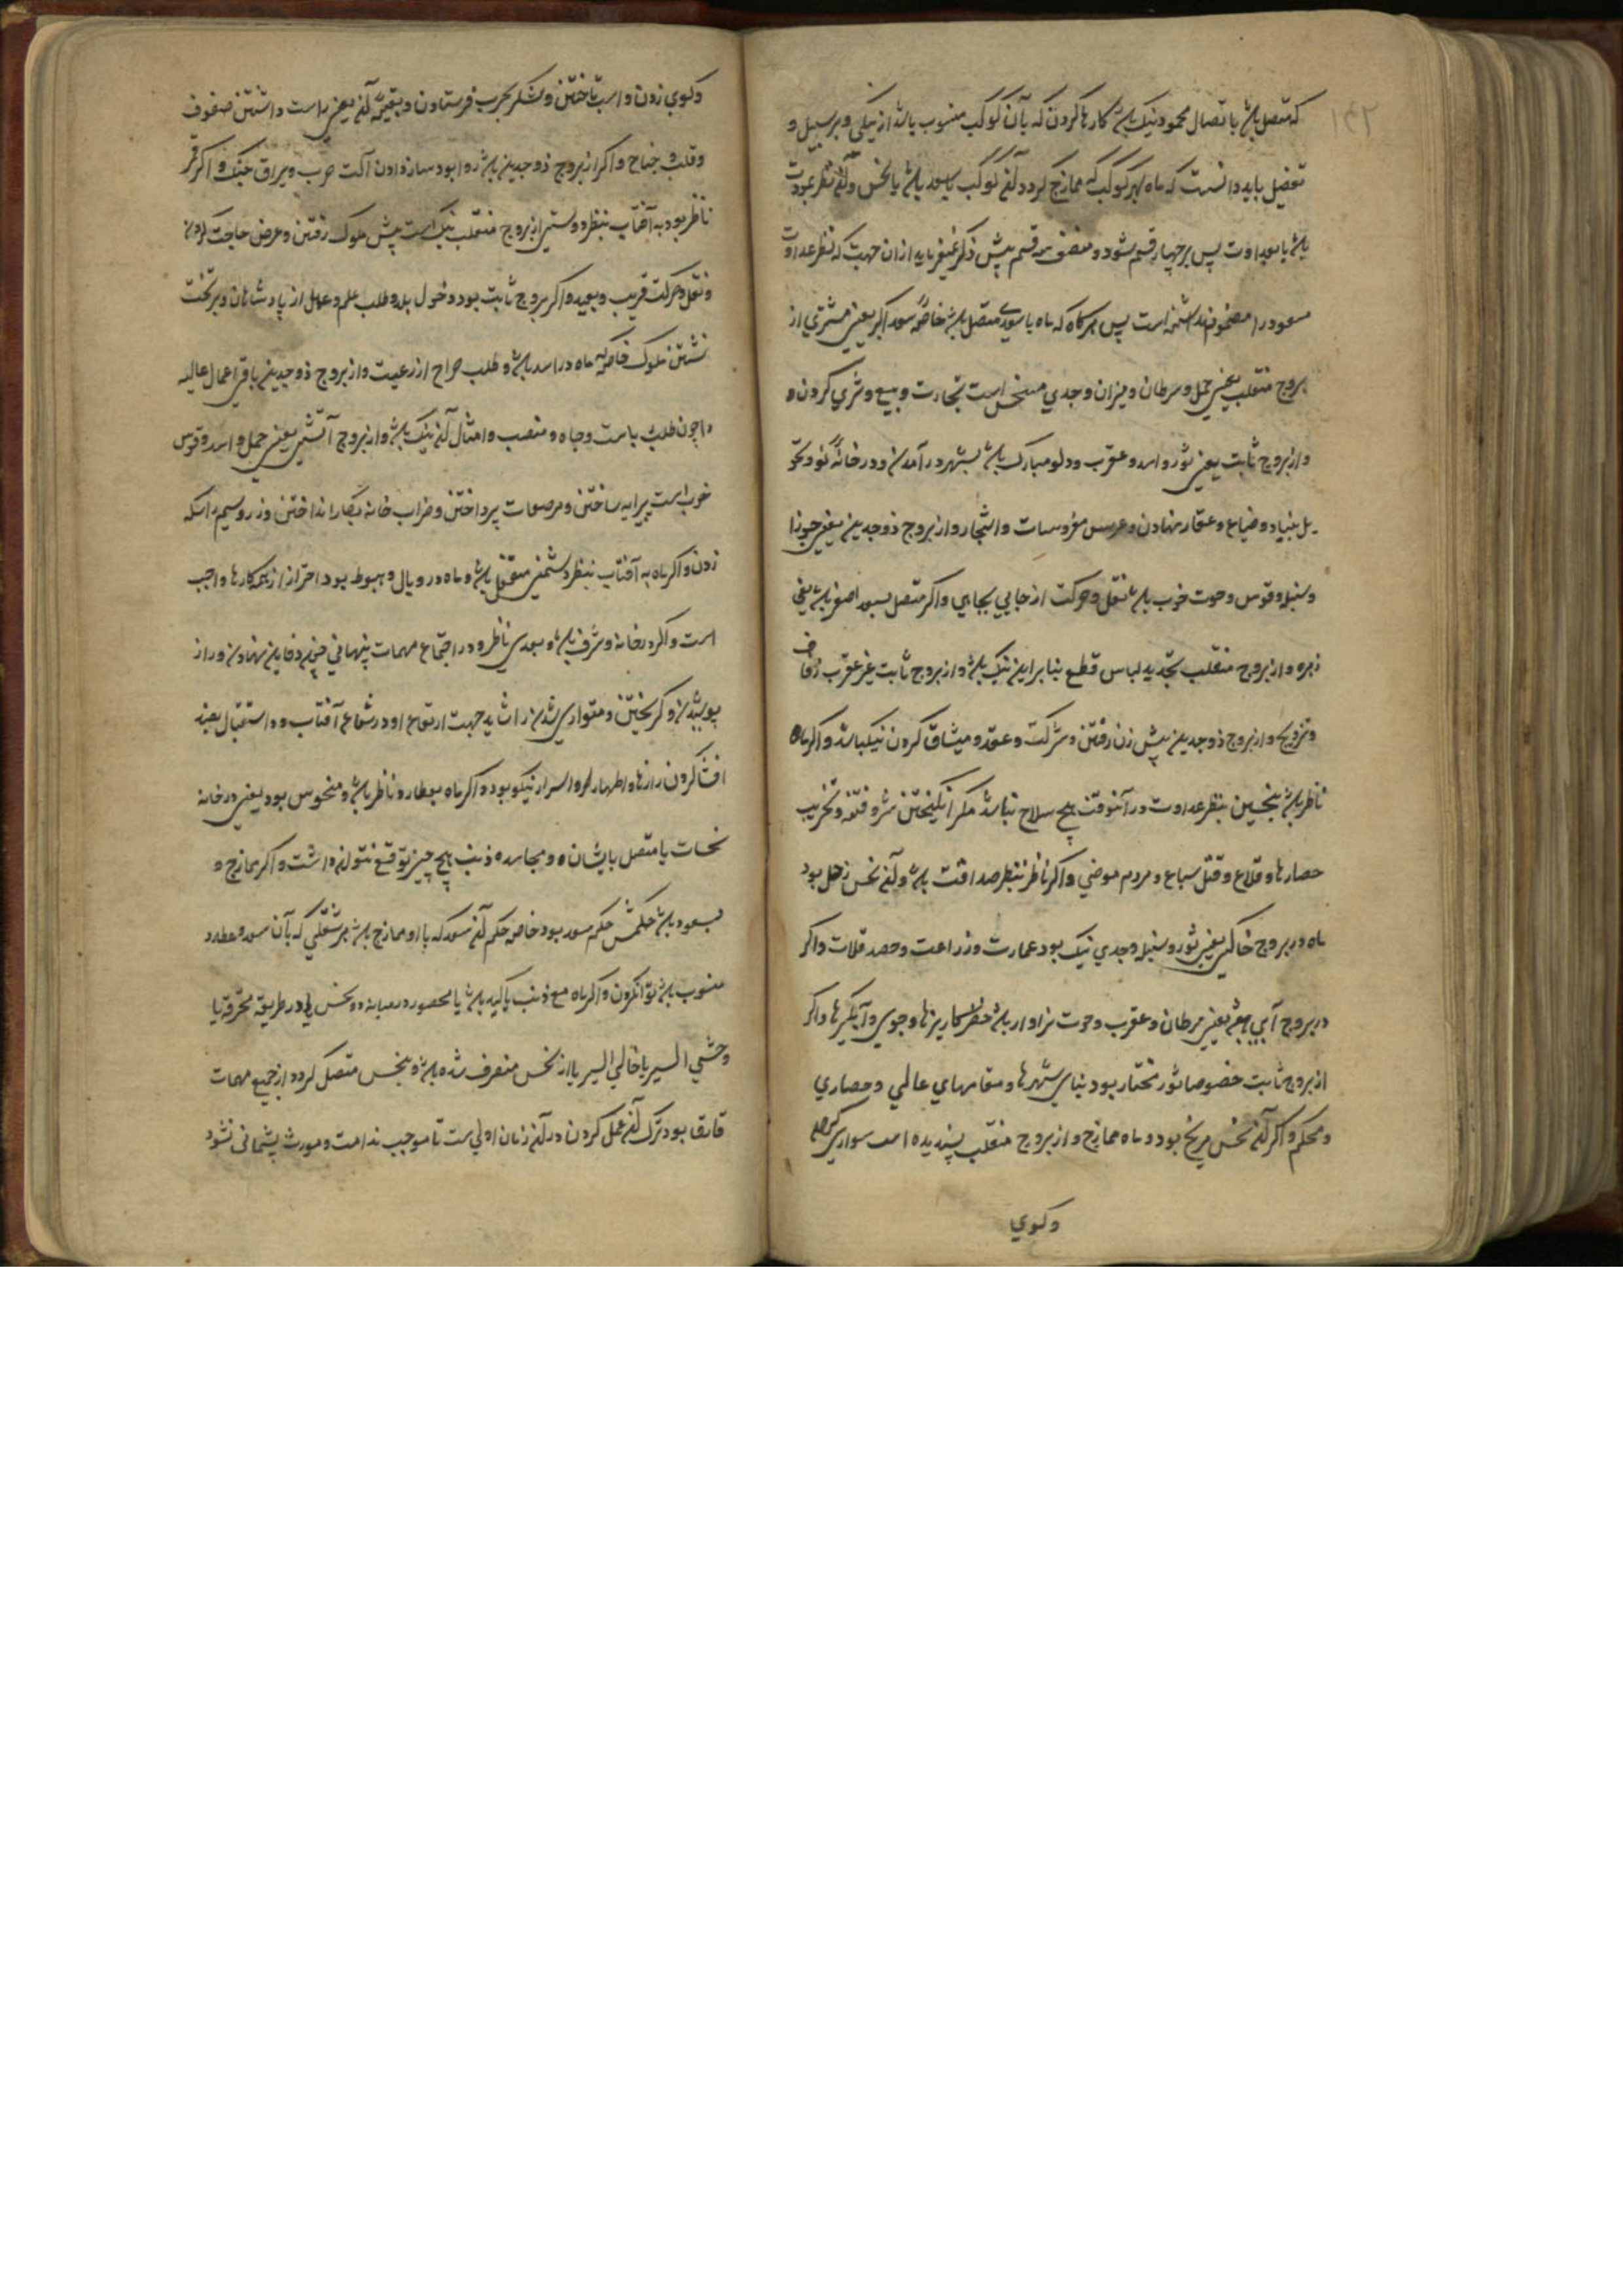 ۱۴۲
که متصل باشد باتصال محمود نیک باشد کارها کردن که بآن کوکب منسوب باشد از نیکی و بر سبیل و
تفصیل باید دانست که ماه بهر کوکب که ممازج کردد آن کوکب یا سعد باشد یا نحس و آن نظر بمودت
باشد یا بعداوت پس بر چهار قسم شود و مصنف سه قسم پیش ذکر نمیفرماید از ان جهت که نظر عداوت
مسعود را مضموم نداشته است پس هرکاه که ماه با سعدی متصل باشد خاصه سعد اکبر یعنی مشتری از
بروج منقلب یعنی حمل و سرطان و میزان و جدی مستحسن است تجارت و بیع و شری کردن و
و از بروج ثابت یعنی ثور و اسد و عقرب و دلو مبارک باشد بشهر در آمدن و در خانهٔ نو و تحو
یل بنیاد و ضیاع و عقار نهادن و غرس مغروسات و اشجار و از بروج ذوجدین یعنی جوزا
و سنبله و قوس و حوت خوب باشد نقل و حرکت از جایی بجای و اکر متصل بسعد اصغر باشد یعنی
زهره و از بروج منقلب تجدید لباس قطع بنابراین نیک باشد و از بروج ثابت غیر عقرب زفاف
و تزویج و از بروج ذوجدین پیش زن رفتن و شرکت و عقد و میثاق کردن نیک باشد و اکر ماه
ناظر باشد بنحسین بنظر عداوت در آنوقت هیچ سلاح نباشد مکر انکیختن شر و فتنه و تخریب
حصارها و قلاع و قتل سباع و مردم موضی و اکر ناظر بنظر صداقت باشد و آن نحس زحل بود
ماه در بروج خاکی یعنی ثور و سنبله و جدی نیک بود عمارت و زراعت و حصد غلات و اکر
در بروج آبی باشد یعنی سرطان و عقرب و حوت سزاوار باشد حفر کاریزها و جوی و آبکیرها و اکر
از بروج ثابت خصوصا ثور مختار بود بنای شهرها و مقامهای عالی و حصاری
و محکم و اکر آن نحس مریخ بود و ماه ممازج و از بروج منقلب پسندیده است سواری
وکوی
وکوی زدن و اسب تاختن و لشکر بحرب فرستادن و بقیهٔ آن یعنی راست داشتن صفوف
و قلب و جناح و اکر از بروج ذوجدین باشد روا بود ساز دادن آلت حرب و یراق جنک و اکر قمر
ناظر بود به آفتاب بنظر دوستی از بروج منقلب نیک است پیش ملوک رفتن و عرض حاجت کردن
و نقل و حرکت قریب و بعید و اکر بروج ثابت بود دخول بلد و طلب علم و عمل از پادشاهان و بر تخت
نشتن ملوک خاصه ماه در اسد باشد و طلب خراج از رعیت و از بروج ذوجدین باقی اعمال عالیه
چون طلب ریاست و جاه و منصب و امثال آن نیک باشد و از بروج آتشی یعنی حمل و اسد و قوس
خوب است پیرایه ساختن و مرصعات پرداختن و ضراب خانه بکار انداختن و زر و سیم را سکه
زدن و اکر ماه به آفتاب بنظر دشمنی متصل باشد و ماه در وبال و هبوط بود احتراز از همه کارها واجب
است و اکر در خانه و شرف باشد و بسعدی ناظر و در اجتماع مهمات پنهانی چون دفاین نهادن و راز
پوشیدن و کریختن و متواری شدن را شاید جهت ارتفاع او در شعاع آفتاب و در استقبال بضد
افشا کردن رازها و اظهار اسرار نیکو بود و اکر ماه بعطارد ناظر باشد و منحوس بود یعنی در خانه
نحسات یا متصل بایشان و مجاسده ذنب هیچ چیز توقع نتوان داشت و اکر ممازج و
بسعود باشد حکمش حکم سعد بود خاصه حکم آن سعد که با او ممازج باشد هر شغلی که بآن سعد و عطارد
منسوب باشد توان کردن و اکر ماه مع ذنب یا کید باشد یا محصور در میان دو نحس یا در طریقه محترقه یا
وحشی السیر یا خالی السیر یا از نحس منصرف شده باشد و بنحس متصل کردد از جمیع مهمات
بود ترک آن عمل کردن در آن زمان اولی است تا موجب ندامت و مورث پشیمانی نشود